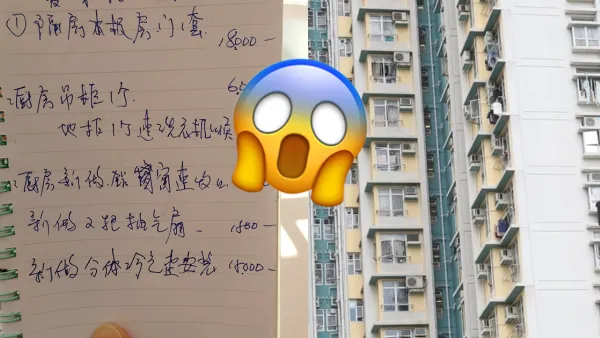 ①隔房木板房门1套 18,000—
厨房吊柜1个
地柜1个连洗衣机
厨房新做铝窗连收口
新做2把抽气扇 — 1800—
新做分体冷气连安装 18,000—